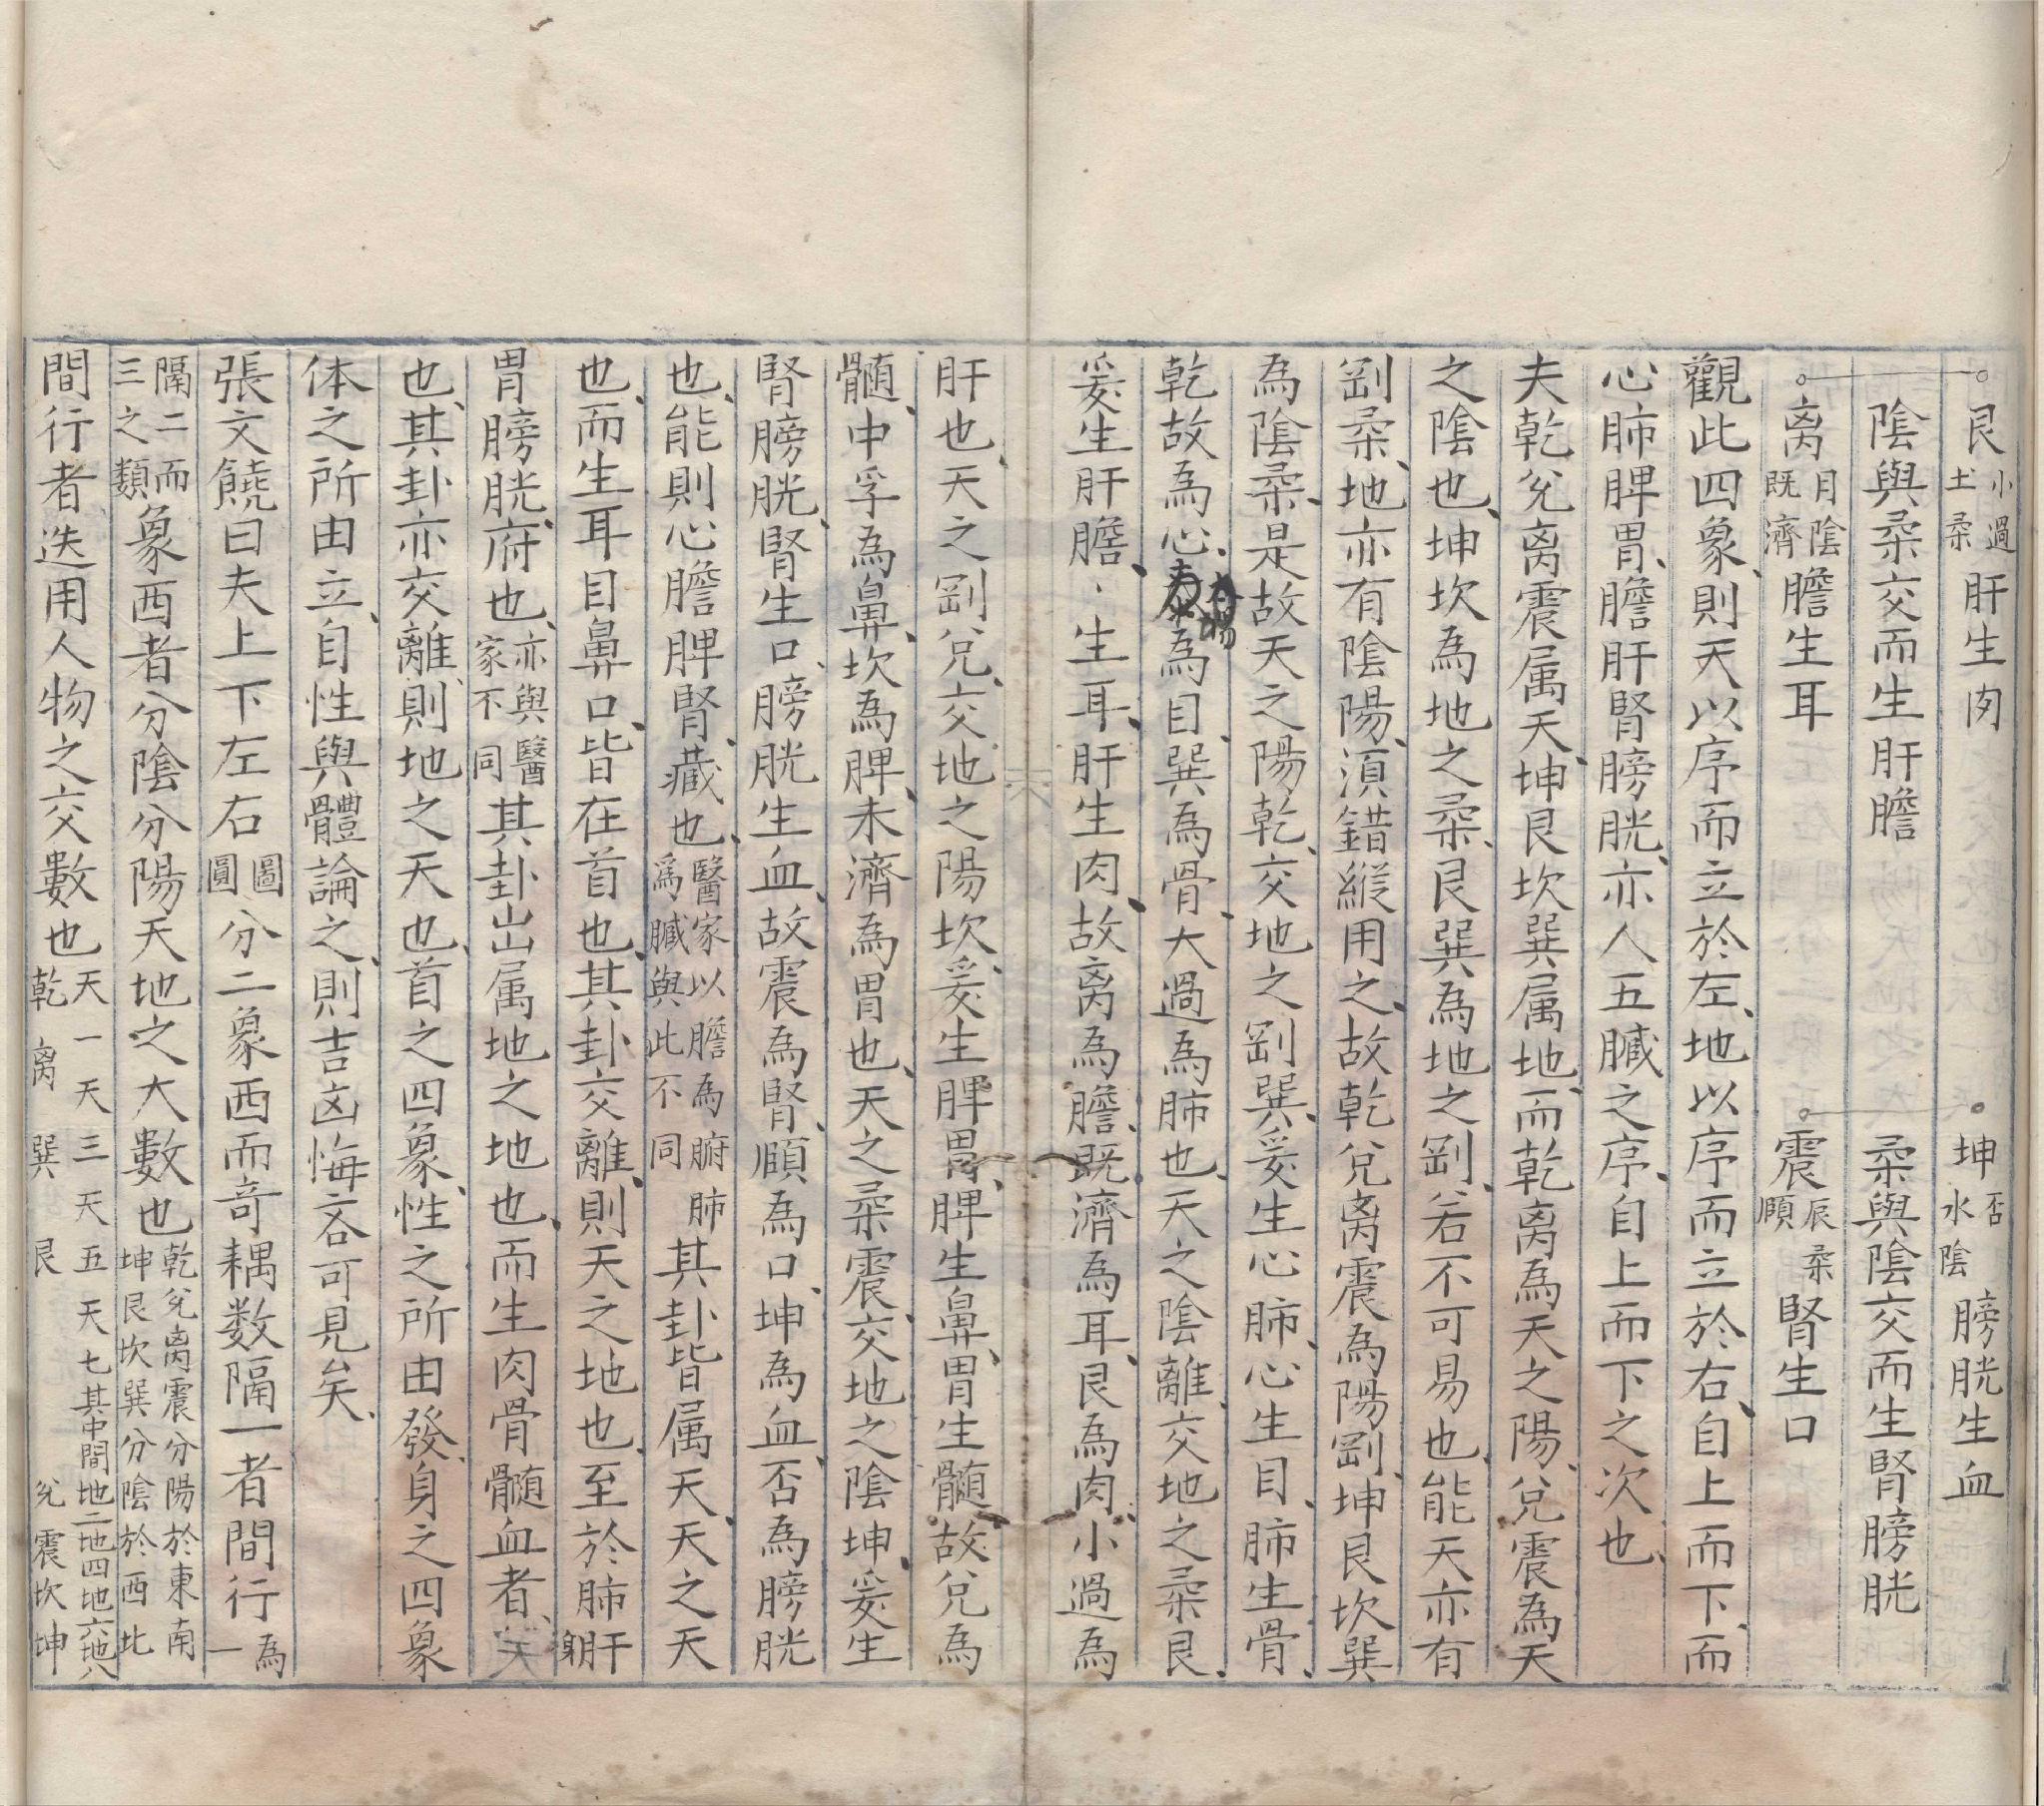 艮小過土柔肝生肉 坤否水陰膀胱生血
陰與柔交而生肝膽 柔與陰交而生腎膀胱
离月陰既濟膽生耳 震辰柔頤腎生口
觀此四象則天以序而立於左、地以序而立於右、自上而下、而
心肺脾胃、膽肝腎膀胱、亦人五臟之序、自上而下之次也、
夫乾兌离震属天、坤艮坎巽属地、而乾离為天之陽、兌震為天
之陰也、坤坎為地之柔、艮巽為地之剛、若不可易也、能天亦有
剛柔、地亦有陰陽、湏錯縱用之、故乾兌离震為陽剛、坤艮坎巽
為陰柔、是故天之陽乾、交地之剛巽、爰生心肺、心生目、肺生骨、
乾故為心、為目、巽為骨、大過為肺也、天之陰離、交地之柔艮、
爰生肝膽、、生耳、肝生肉、故离為膽、既濟為耳、艮為肉、小過為
肝也、天之剛兌、交地之陽坎、爰生脾胃、脾生鼻、胃生髓、故兌為
髓、中孚為鼻、坎為脾、未濟為胃也、天之柔震、交地之陰坤、爰生
腎膀胱、腎生口、膀胱生血、故震為腎、頤為口、坤為血、否為膀胱
也、能則心膽脾腎、藏也、醫家以膽為腑肺為臟與此不同其卦皆属天、天之天
也、而生耳目鼻口、皆在首也、其卦交離、則天之地也、至於肺肝
胃膀胱、府也、亦與醫家不同其卦出属地之地也、而生肉骨髓血者、
也、其卦亦交離、則地之天也、首之四象、性之所由發、身之四象
体之所由立、自性與體論之、則吉凶悔吝可見矣、
張文饒曰夫上下左右圖圓分二象西而奇耦数隔一者間行為一
隔二而三之類象西者分陰分陽天地之大數也乾兌离震分陽於東南坤艮坎巽分陰於西北
間行者迭用人物之交數也天一天三天五天七其中間地二地四地六地八乾离巽艮兌震坎坤